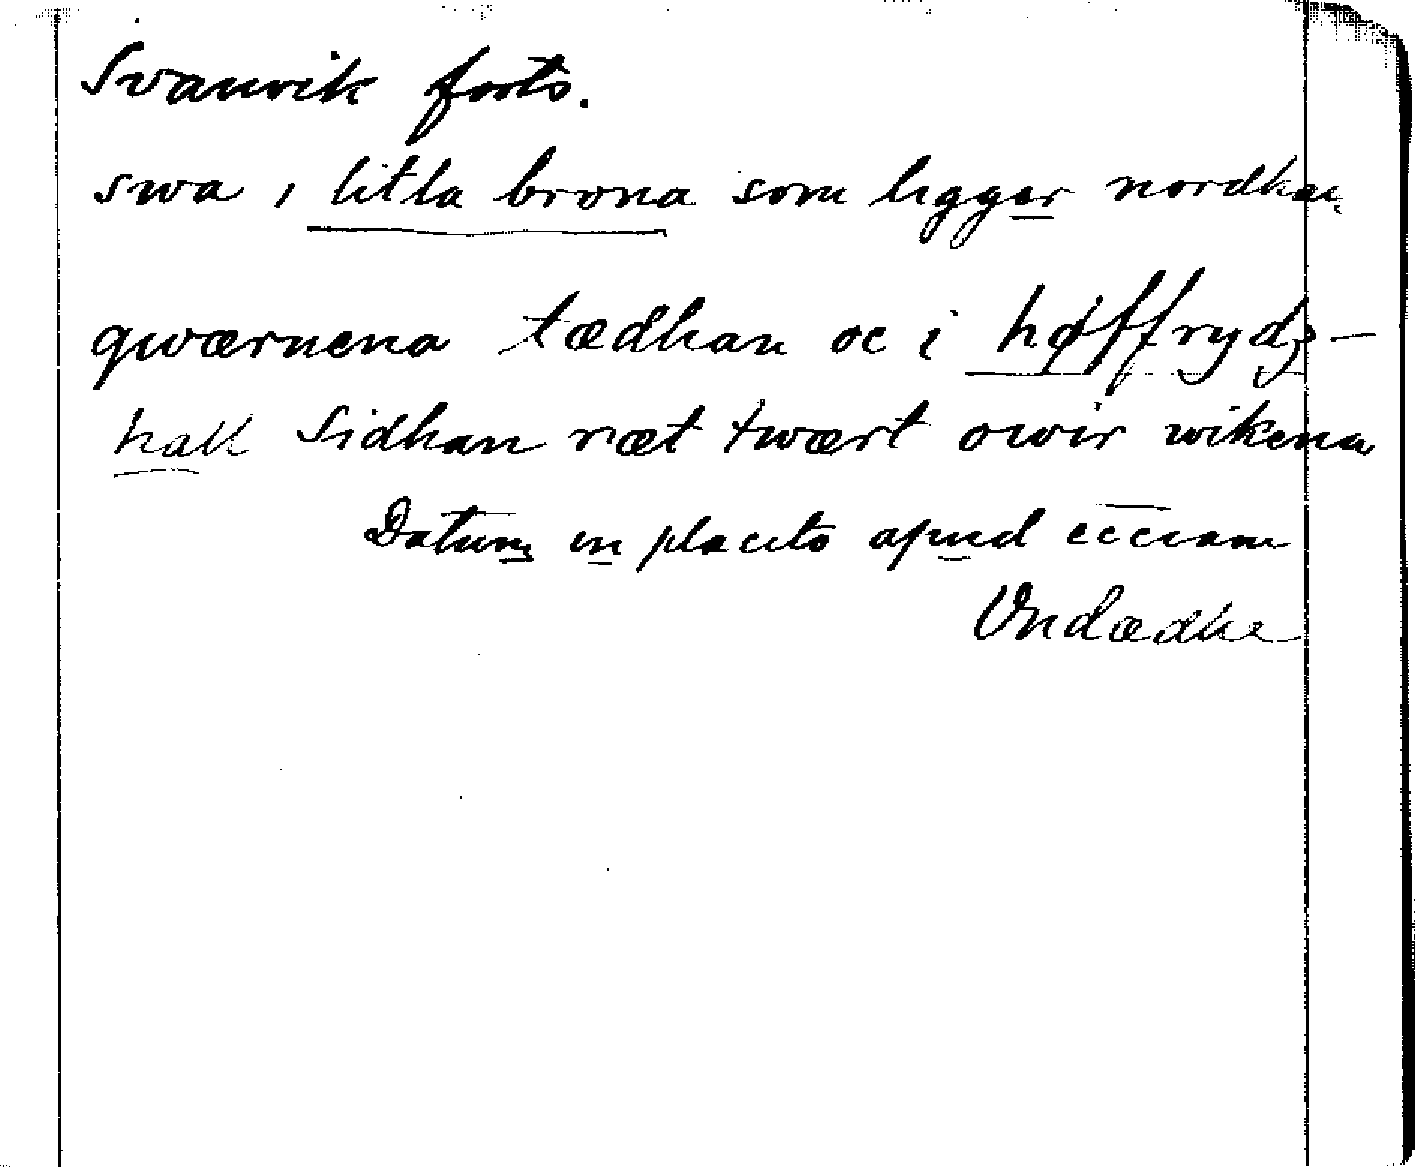 Svanvik forts.
swa i litla brona som ligger nordhan
qwærnena tædhan oc i høffrydz-
hall Sidhan ræt twært owir wikena
Datum in placito apud ecciam
Undædhe